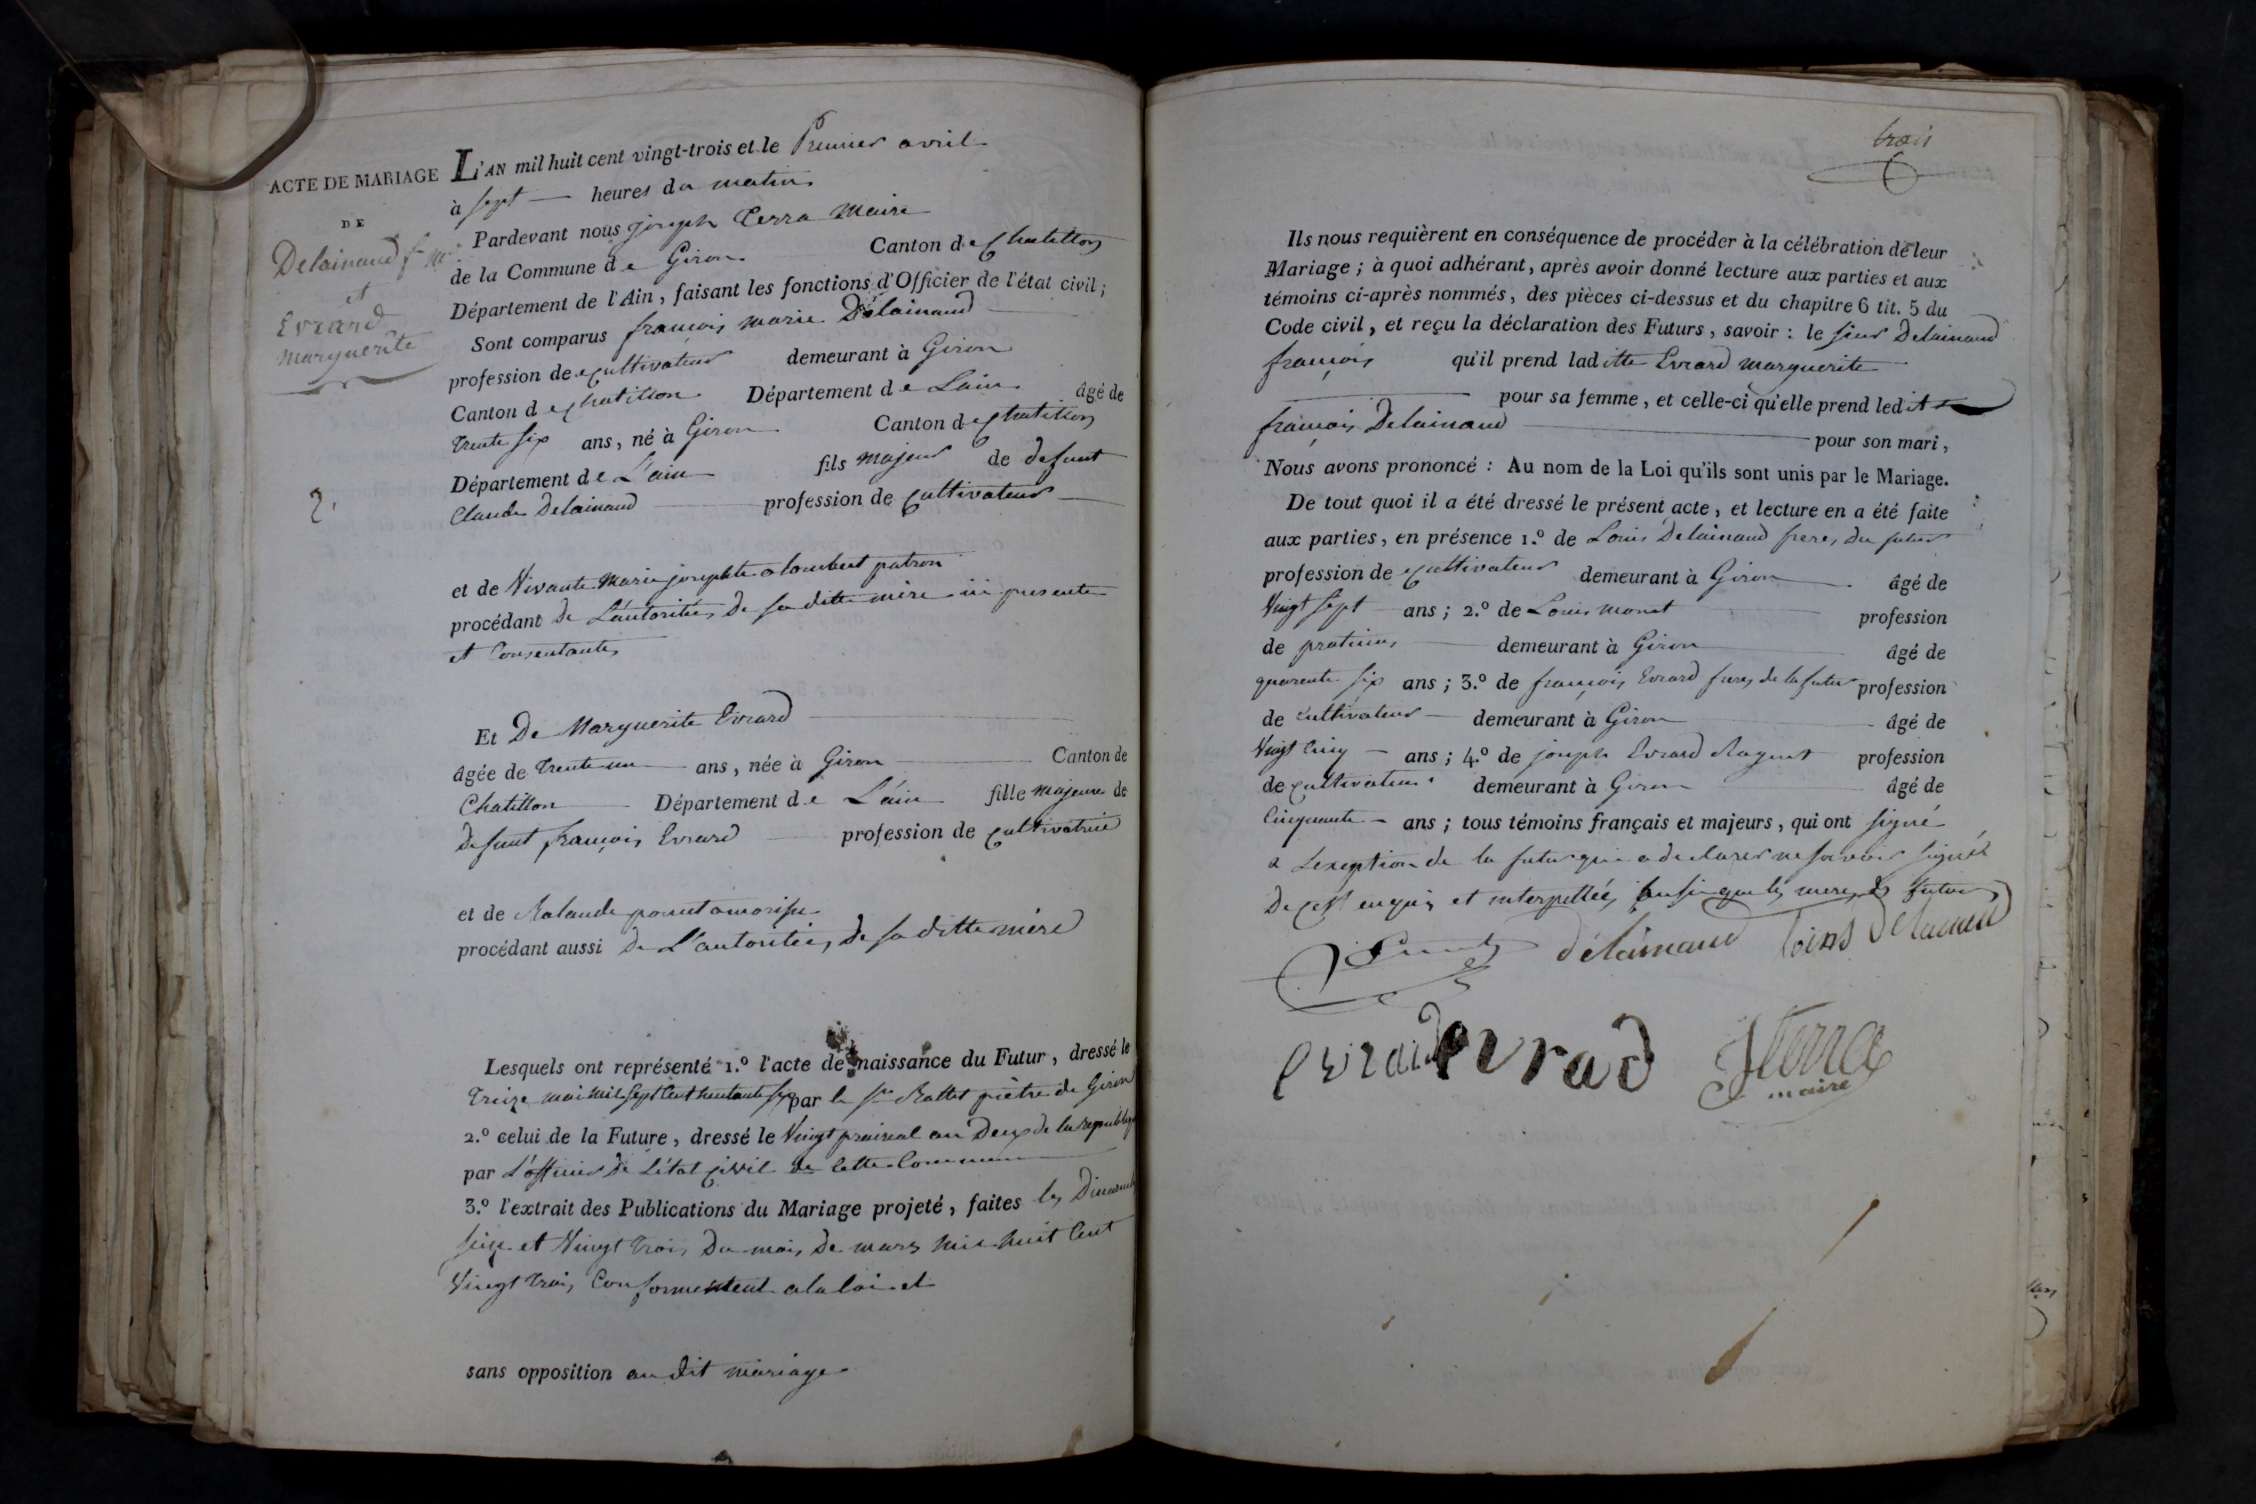 ACTE DE MARIAGE
DE
Delainaud f. m.
et
Evrard
Marguerite
2.
L'AN mil huit cent vingt-trois et le Premier avril
à sept heures du matin
Pardevant nous joseph Terra Maire
de la Commune de Giron Canton de Chatillon
Département de l'Ain, faisant les fonctions d'Officier de l'état civil;
Sont comparus françois marie Délainaud
profession de cultivateur demeurant à Giron
Canton de chatillon Département de Lain âgé de
trente six ans, né à Giron Canton de chatillon
Département de L'ain fils majeur de defunt
Claude Delainaud profession de cultivateur
et de Vivante Marie josephte patron
procédant de L'autoritée de sa ditte mère ici presente
et Consentante
Et De Marguerite Evrard
âgée de trente un ans, née à Giron Canton de
Chatillon Département de L'ain fille majeure de
defunt françois Evrard profession de cultivatrice
et de
procédant aussi de L'autoritée de sa ditte mère
Lesquels ont représenté 1.º l'acte de naissance du Futur, dressé le
treize mai mil sept Cent huitante six par le Sr prêtre de Giron
2.º celui de la Future, dressé le Vingt prairial an Deux de la republique
par L'officier de L'état civil de Cette Commune
3.º l'extrait des Publications du Mariage projeté, faites les Dimanches
seize et Vingt trois du mois de mars mil huit Cent
Vingt trois Conformement a la loi et
sans opposition au dit mariage
trois
Ils nous requièrent en conséquence de procéder à la célébration de leur
Mariage; à quoi adhérant, après avoir donné lecture aux parties et aux
témoins ci-après nommés, des pièces ci-dessus et du chapitre 6 tit. 5 du
Code civil, et reçu la déclaration des Futurs, savoir: le sieur Delainaud
françois qu'il prend laditte Evrard marguerite
pour sa femme, et celle-ci qu'elle prend ledit
françois Delainaud pour son mari,
Nous avons prononcé: Au nom de la Loi qu'ils sont unis par le Mariage.
De tout quoi il a été dressé le présent acte, et lecture en a été faite
aux parties, en présence 1.º de Louis Delainaud frere du futur
profession de cultivateur demeurant à Giron âgé de
Vingt sept ans; 2.º de Louis Monet profession
de praticien demeurant à Giron âgé de
quarente six ans; 3.º de françois Evrard frere de la futur profession
de cultivateur demeurant à Giron âgé de
Vingt Cinq ans; 4.º de joseph Evrard profession
de cultivateur demeurant à Giron âgé de
Cinquante ans; tous témoins français et majeurs, qui ont signé
a Lexeption de la futur qui a declarer ne savoir signer
De ce enquis et interpellée ainsi que les meres des futurs
délainaud loins delainau
evrard evrad JTerra
maire